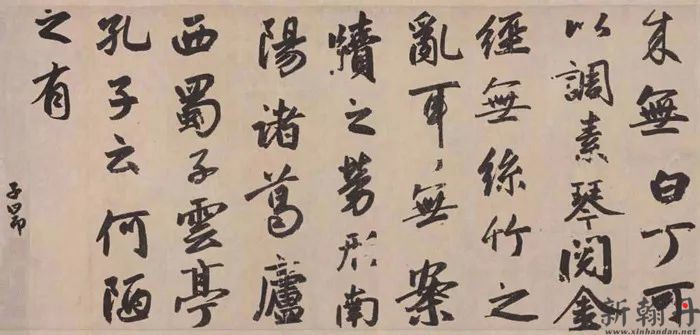 来無白丁可
以調素琴閱金
經無絲竹之
亂耳無案
牘之勞形南
陽諸葛廬
西蜀子雲亭
孔子云何陋
之有
子昂
新翰丹
www.xinhandan.net